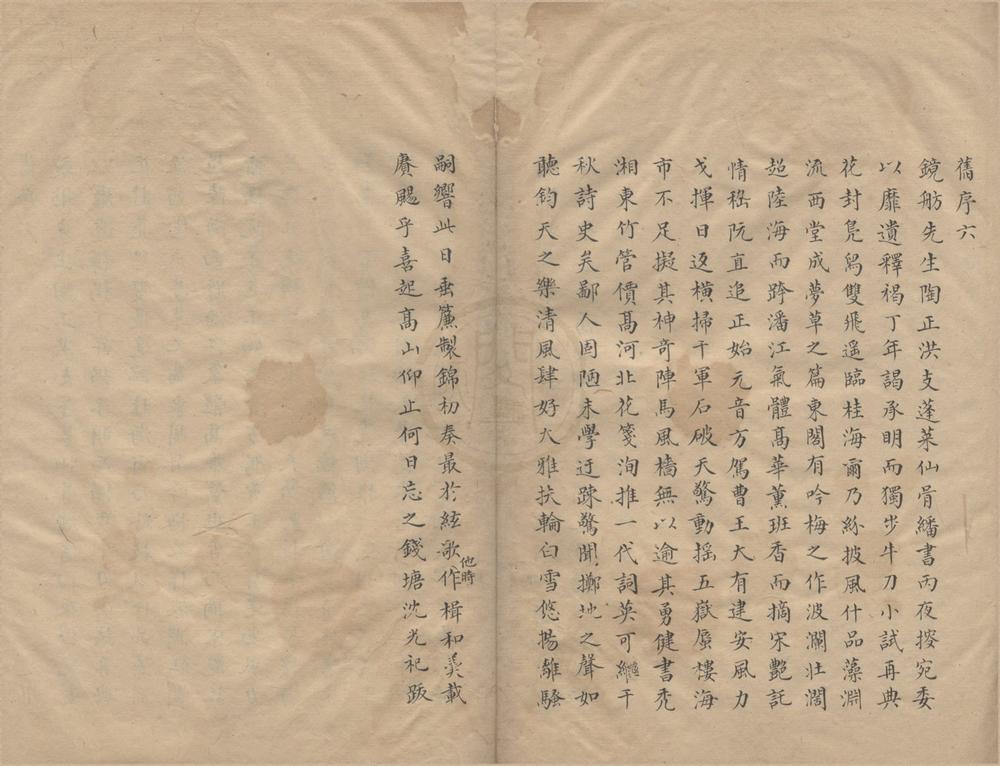 舊序六
鏡舫先生陶正洪支蓬萊仙骨繙書丙夜按宛委
以靡遺釋褐丁年謁承明而獨步牛刀小試再典
花封鳧舄雙飛遥臨桂海爾乃紛披風什品藻淵
流西堂成夢草之篇東閣有吟梅之作波瀾壯濶
超陸海而跨潘江氣體髙華薰班香而摘宋艷託
情嵇阮直追正始元音方駕曹王大有建安風力
戈揮日返横掃千軍石破天驚動摇五嶽蜃樓海
市不足擬其神竒陣馬風檣無以逾其勇健書秃
湘東竹管價髙河北花箋洵推一代詞英可繼千
秋詩史矣鄙人固陋未學迂踈驚聞擲地之聲如
聽鈞天之樂清風肆好大雅扶輪白雪悠揚離騷
嗣響此日垂簾製錦初奏最於絃歌他時作楫和羹載
賡賜乎喜起髙山仰止何日忘之錢塘沈光祀跋